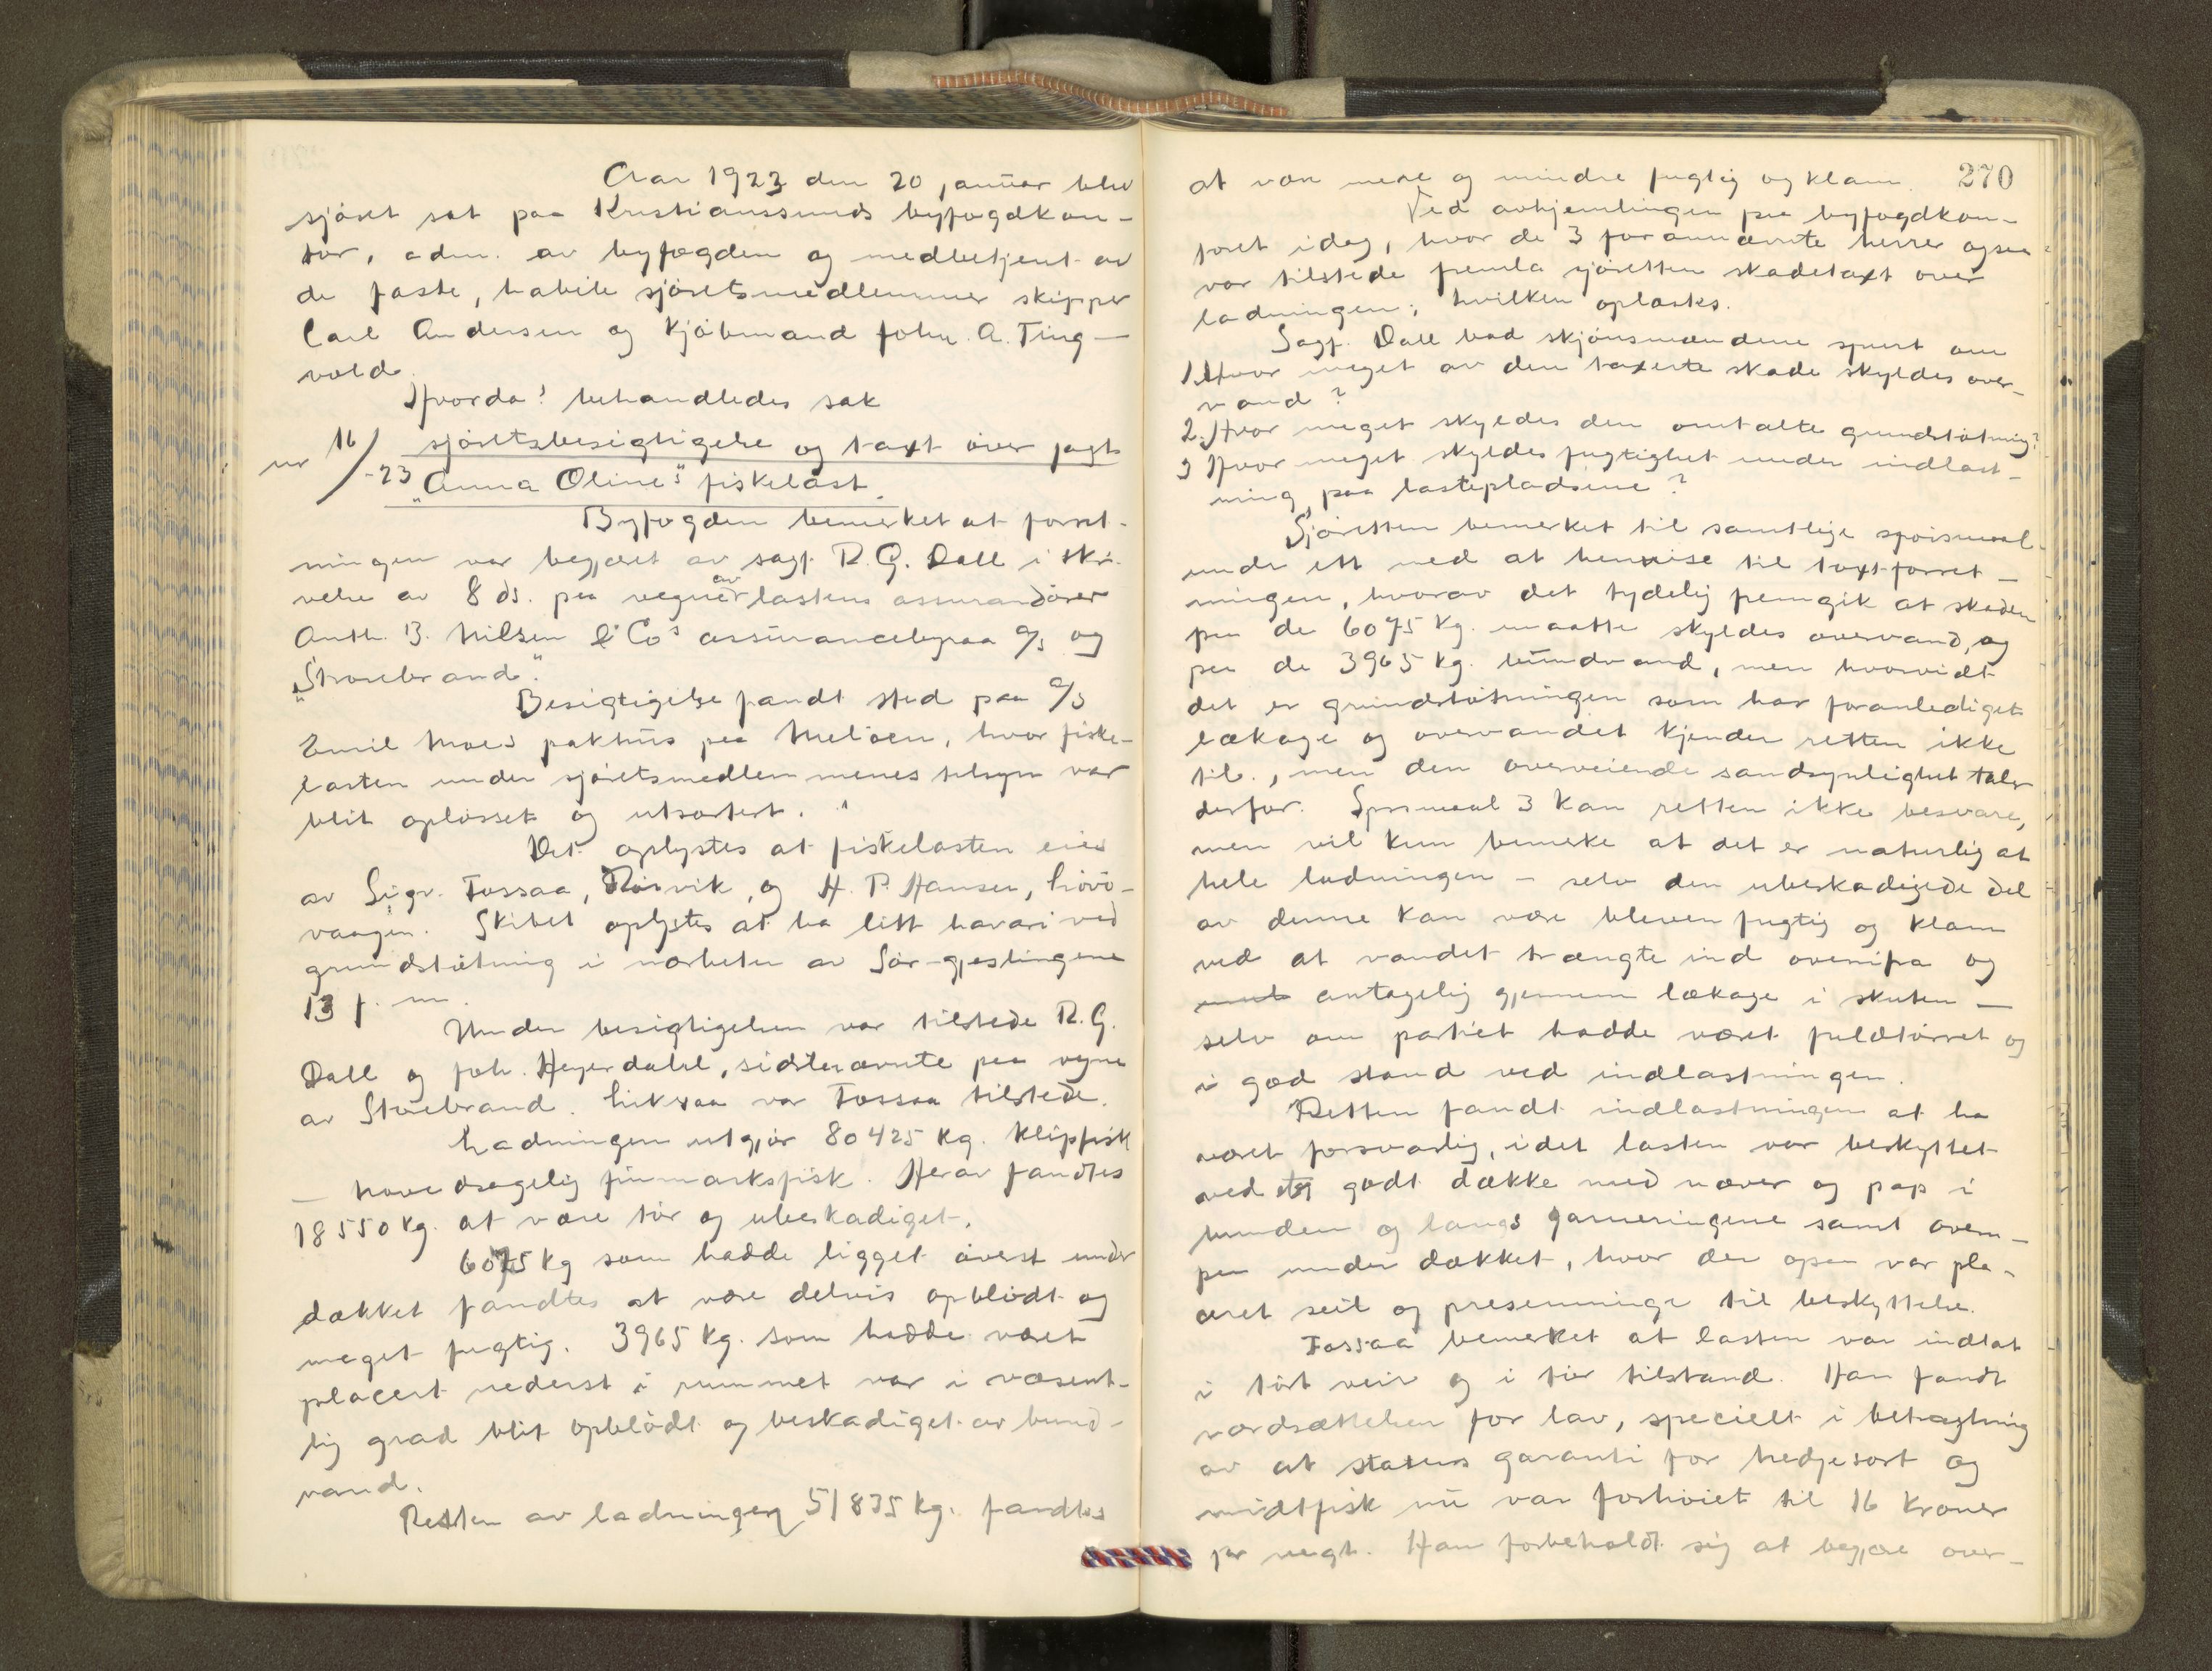 Aar 1923 den 20 januar blev
sjøret sat paa Kristianssunds byfogdkon-
tor, adm. av byfogden og medbetjent av
de faste, habile sjøretsmedlemmer skipper
Carl Andersen og kjøbmand John. A. Ting-
vold.
Hvorda! behandledes sak
nr 16/-23 sjøretsbesigtigelse og taxt over jagt
"Anna Oline"s fiskelast.
Byfogden bemerket at forret-
ningen var begjæret av sagf. R. G. Dall i skri-
velse av 8 ds. paa vegne av lastens assurandører
Anth. B. Nilsen & Co's assurancebyraa A/S og
"Storebrand".
Besigtigelse fandt sted paa A/S
Emil Moes pakhus paa Meløen, hvor fiske-
lasten under sjøretsmedlemmenes tilsyn var
blit oplosset og utsortert.
Det oplystes at fiskelasten eies
av Sigv. Fossaa, Rørvik, og H. P. Hansen, Løvø-
vaagen. Skibet oplystes at ha litt havari ved
grundstøtning i nærheten av Sør-gjæslingene
13 f. m.
Under besigtigelsen var tilstede R. G.
Dall og Joh. Heyerdahl, sidstnævnte paa vegne
av Storebrand. Likesaa var Fossaa tilstede.
Ladningen utgjør 80425 kg. klipfisk
– hovedsagelig finmarksfisk. Herav fandtes
18550 kg. at være tør og ubeskadiget.
6075 kg som hadde ligget øverst under
dækket fandtes at være delvis opbløtt og
meget fugtig. 3965 kg. som hadde været
placert nederst i rummet var i væsent-
lig grad blit opbløtt og beskadiget av bund-
vand.
Resten av ladningen 51835 kg. fandtes
270
at være mere og mindre fugtig og klam.
Ved avhjemlingen paa byfogdkon-
toret idag, hvor de 3 forannævnte herrer ogsaa
var tilstede fremla sjøretten skadetaxt over
ladningen; hvilken oplæstes.
Sagf. Dall bad skjønsmændene spurt om
1. Hvor meget av den taxerte skade skyldes over-
vand?
2. Hvor meget skyldes den omtalte grundstøtning?
3 Hvor meget skyldes fugtighet under indlast-
ning paa lastepladsene?
Sjøretten bemerket til samtlige spørsmaal
under ett ved at henvise til taxtforret-
ningen, hvorav det tydelig fremgik at skaden
paa de 6075 kg. maatte skyldes overvand, og
paa de 3965 kg. bundvand, men hvorvidt
det er grundstøtningen som har foranlediget
lækage og overvandet kjender retten ikke
til., men den overveiende sandsynlighet taler
derfor. Spørsmaal 3 kan retten ikke besvare,
men vil kun bemerke at det er naturlig at
hele ladningen – selv den ubeskadigede del
av denne kan være bleven fugtig og klam
ved at vandet trængte ind ovenifra og
antagelig gjennem lækage i skuten –
selv om partiet hadde været fuldtørret og
i god stand ved indlastningen.
Retten fandt indlastningen at ha
været forsvarlig, idet lasten var beskyttet
ved godt dække med næver og pap i
bunden og langs garneringene samt oven-
paa under dækket, hvor der ogsaa var pla-
ceret seil og presenninge til beskyttelse.
Fossaa bemerket at lasten var indlat
i tørt veir og i tør tilstand. Han fandt
værdsættelsen for lav, specielt i betragtning
av at statens garanti for tredjesort og
midtfisk nu var forhøiet til 16 kroner
pr vegt. Han forbeholdt sig at begjære over-